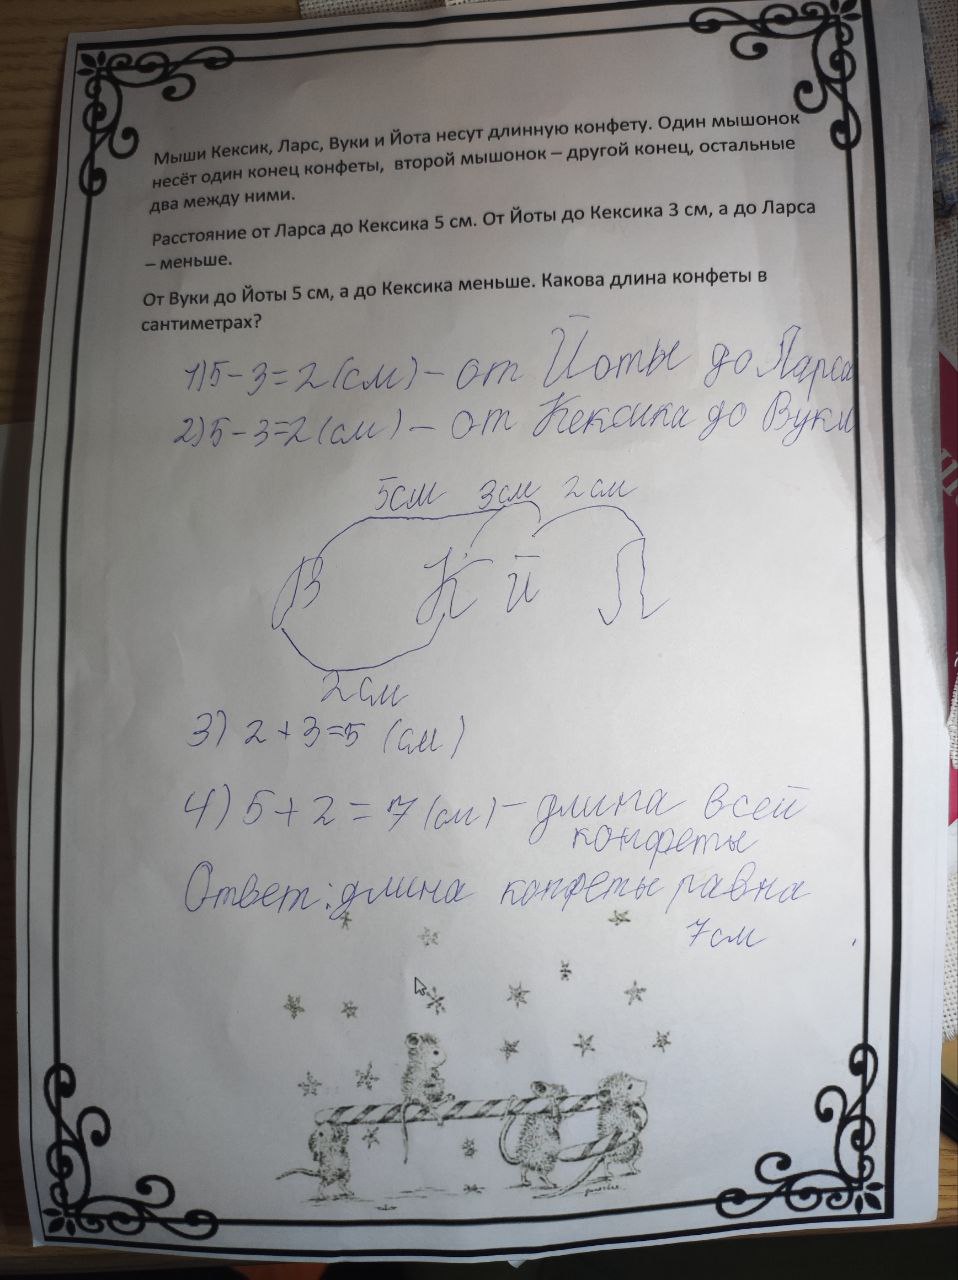 Мыши Кексик, Ларс, Вуки и Йота несут длинную конфету. Один мышонок
несёт один конец конфеты, второй мышонок – другой конец, остальные
два между ними.
Расстояние от Ларса до Кексика 5 см. От Йоты до Кексика 3 см, а до Ларса
– меньше.
От Вуки до Йоты 5 см, а до Кексика меньше. Какова длина конфеты в
сантиметрах?
1) 5 - 3 = 2 (см) - от Йоты до Ларса
2) 5 - 3 = 2 (см) - от Кексика до Вуки
5см 3см 2см
В К Й Л
2см
3) 2 + 3 = 5 (см)
4) 5 + 2 = 7 (см) - длина всей
конфеты
Ответ: длина конфеты равна
7см